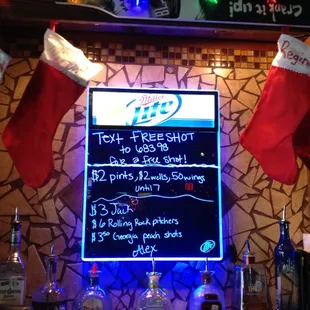 Crank it up!
Regin
Miller
Lite
Text FREESHOT
to 68398
for a free shot!
$2 pints, $2 wells, 50¢ wings
until 7
$3 Jack
$6 Rolling Rock pitchers
$3⁵⁰ Georgia peach shots
Alex